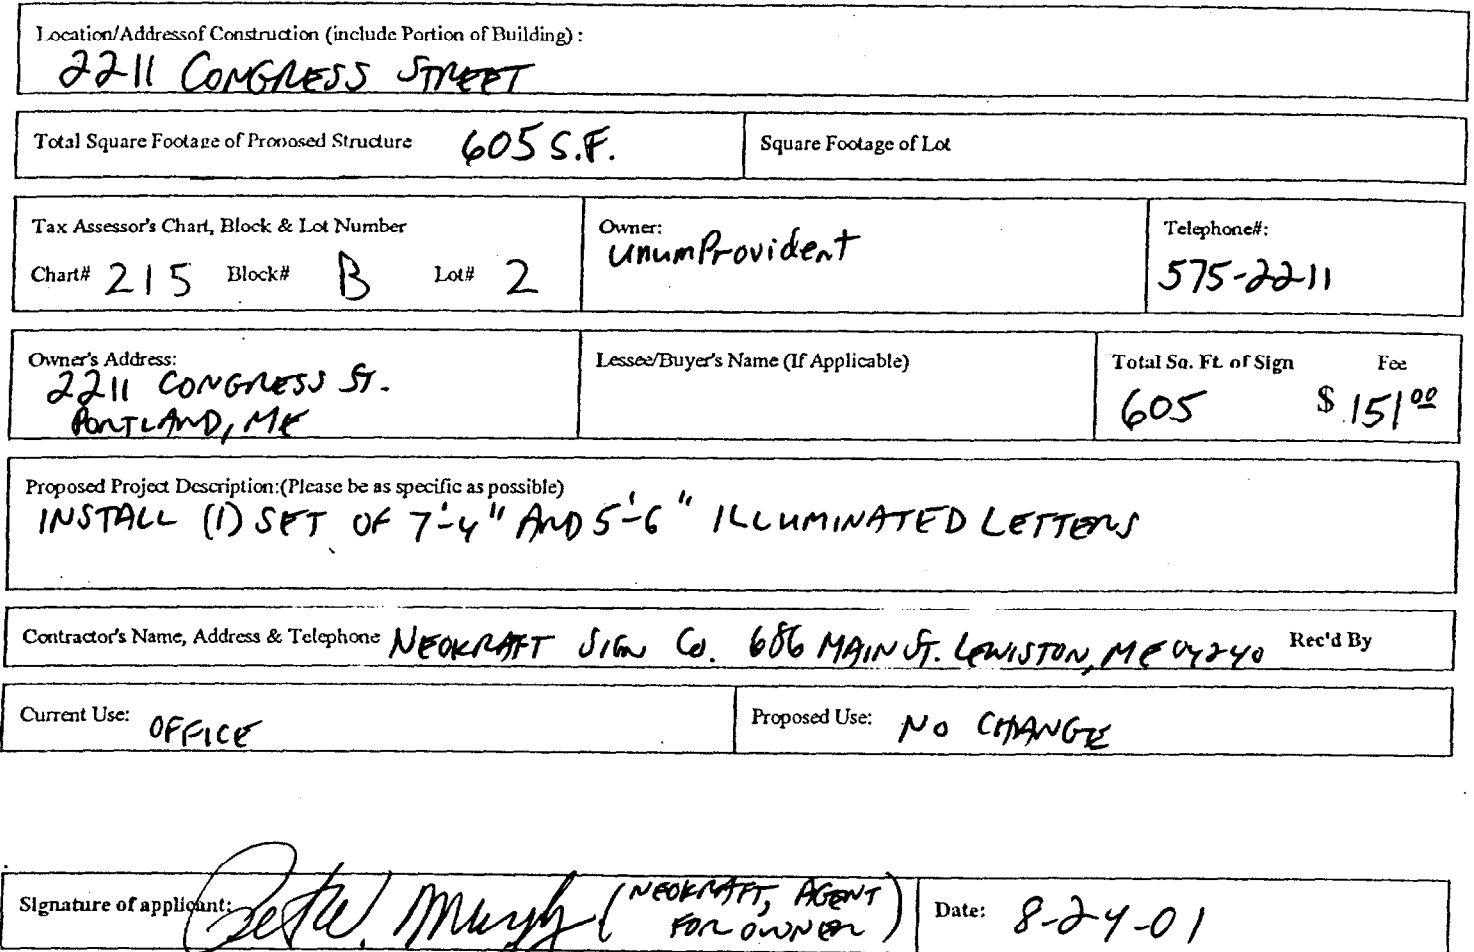 Location/Addressof Construction (include Portion of Building) :
2211 CONGRESS STREET
Total Square Footage of Proposed Structure 605 S.F. Square Footage of Lot
Tax Assessor's Chart, Block & Lot Number Owner: Telephone#:
UnumProvident
Chart# 215 Block# B Lot# 2 575-2211
Owner's Address: Lessee/Buyer's Name (If Applicable) Total Sq. Ft. of Sign Fee
2211 CONGRESS ST. 605 $ 151 00
PORTLAND, ME
Proposed Project Description:(Please be as specific as possible)
INSTALL (1) SET OF 7'-4" AND 5'-6" ILLUMINATED LETTERS
Contractor's Name, Address & Telephone NEOKRAFT SIGN CO. 686 MAIN ST. LEWISTON, ME 04240 Rec'd By
Current Use: OFFICE Proposed Use: NO CHANGE
Signature of applicant: (NEOKRAFT, AGENT Date: 8-24-01
FOR OWNER)